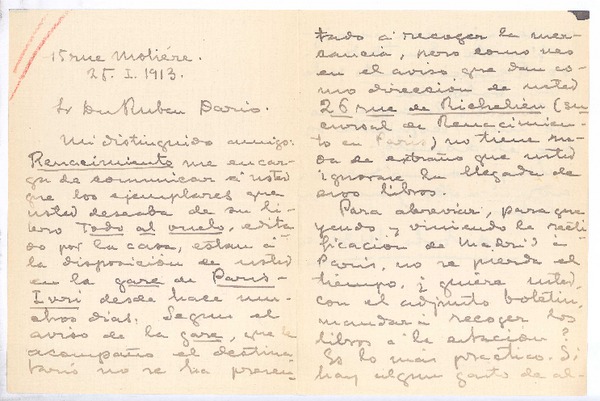 15 rue Molière.
25. I. 1913.
Sr Dn Ruben Dario.
Mi distinguido amigo:
Renacimiento me encar-
ga de comunicar á usted
que los ejemplares que
usted deseaba de su li-
bro Todo al vuelo, edita-
do por la casa, estan á
la disposición de usted
en la gare de Paris-
Ivri desde hace mu-
chos dias. Segun el
aviso de la gare, que le
acompaño el destina-
tario no se ha presen-
tado á recoger la mer-
cancia, pero como veo
en el aviso que dan co-
mo dirección de usted
26 rue de Richelieu (su-
cursal de Renacimien-
to en Paris) no tiene na-
da de extraño que usted
ignorase la llegada de
esos libros.
Para abreviar, para que
yendo y viniendo la recti-
ficacion de Madrid á
Paris, no se pierda el
tiempo, ¿quiere usted,
con el adjunto boletin,
mandar á recoger los
libros á la estación?
Es lo más práctico. Si
hay algun gasto de al-